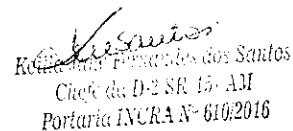 Fernandes dos Santos
Chefe da D-2 SR-15- AM
Portaria INCRA Nº 610/2016